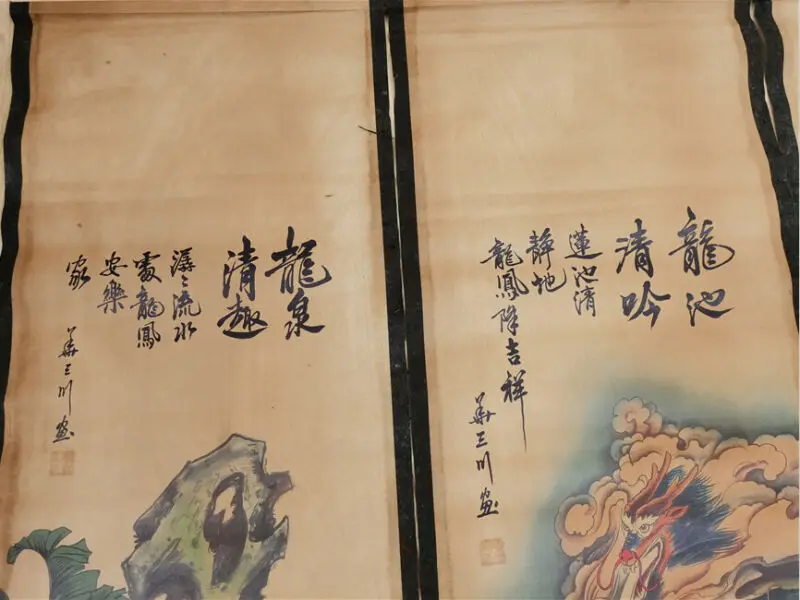 龍池
清吟
蓮池清
靜地
龍鳳降吉祥
華三川畫
龍泉
清趣
潺々流水
處龍鳳
安樂
家
華三川畫